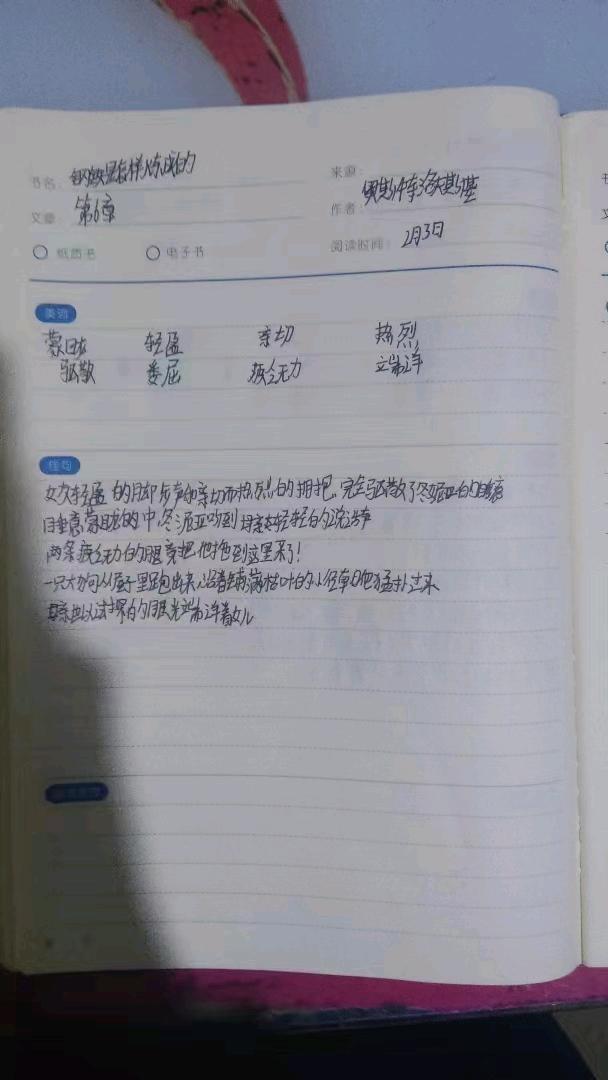 书名: 钢铁是怎样炼成的
来源:
文章: 第6章
作者: 奥斯特洛夫斯基
纸质书 电子书
阅读时间: 2月3日
美词
蒙眬 轻盈 亲切 热烈
驱散 委屈 疲乏无力 端详
佳句
女友轻盈的脚步声和亲切而热烈的拥抱,完全驱散了冬妮亚的睡意
睡意蒙眬的中,冬妮亚听到母亲轻轻的说话声
两条疲乏无力的腿竟把他拖到这里来了!
一只大狗从屋子里跑出来,沿着铺满枯叶的小径朝他猛扑过来
母亲也以试探的眼光端详着女儿